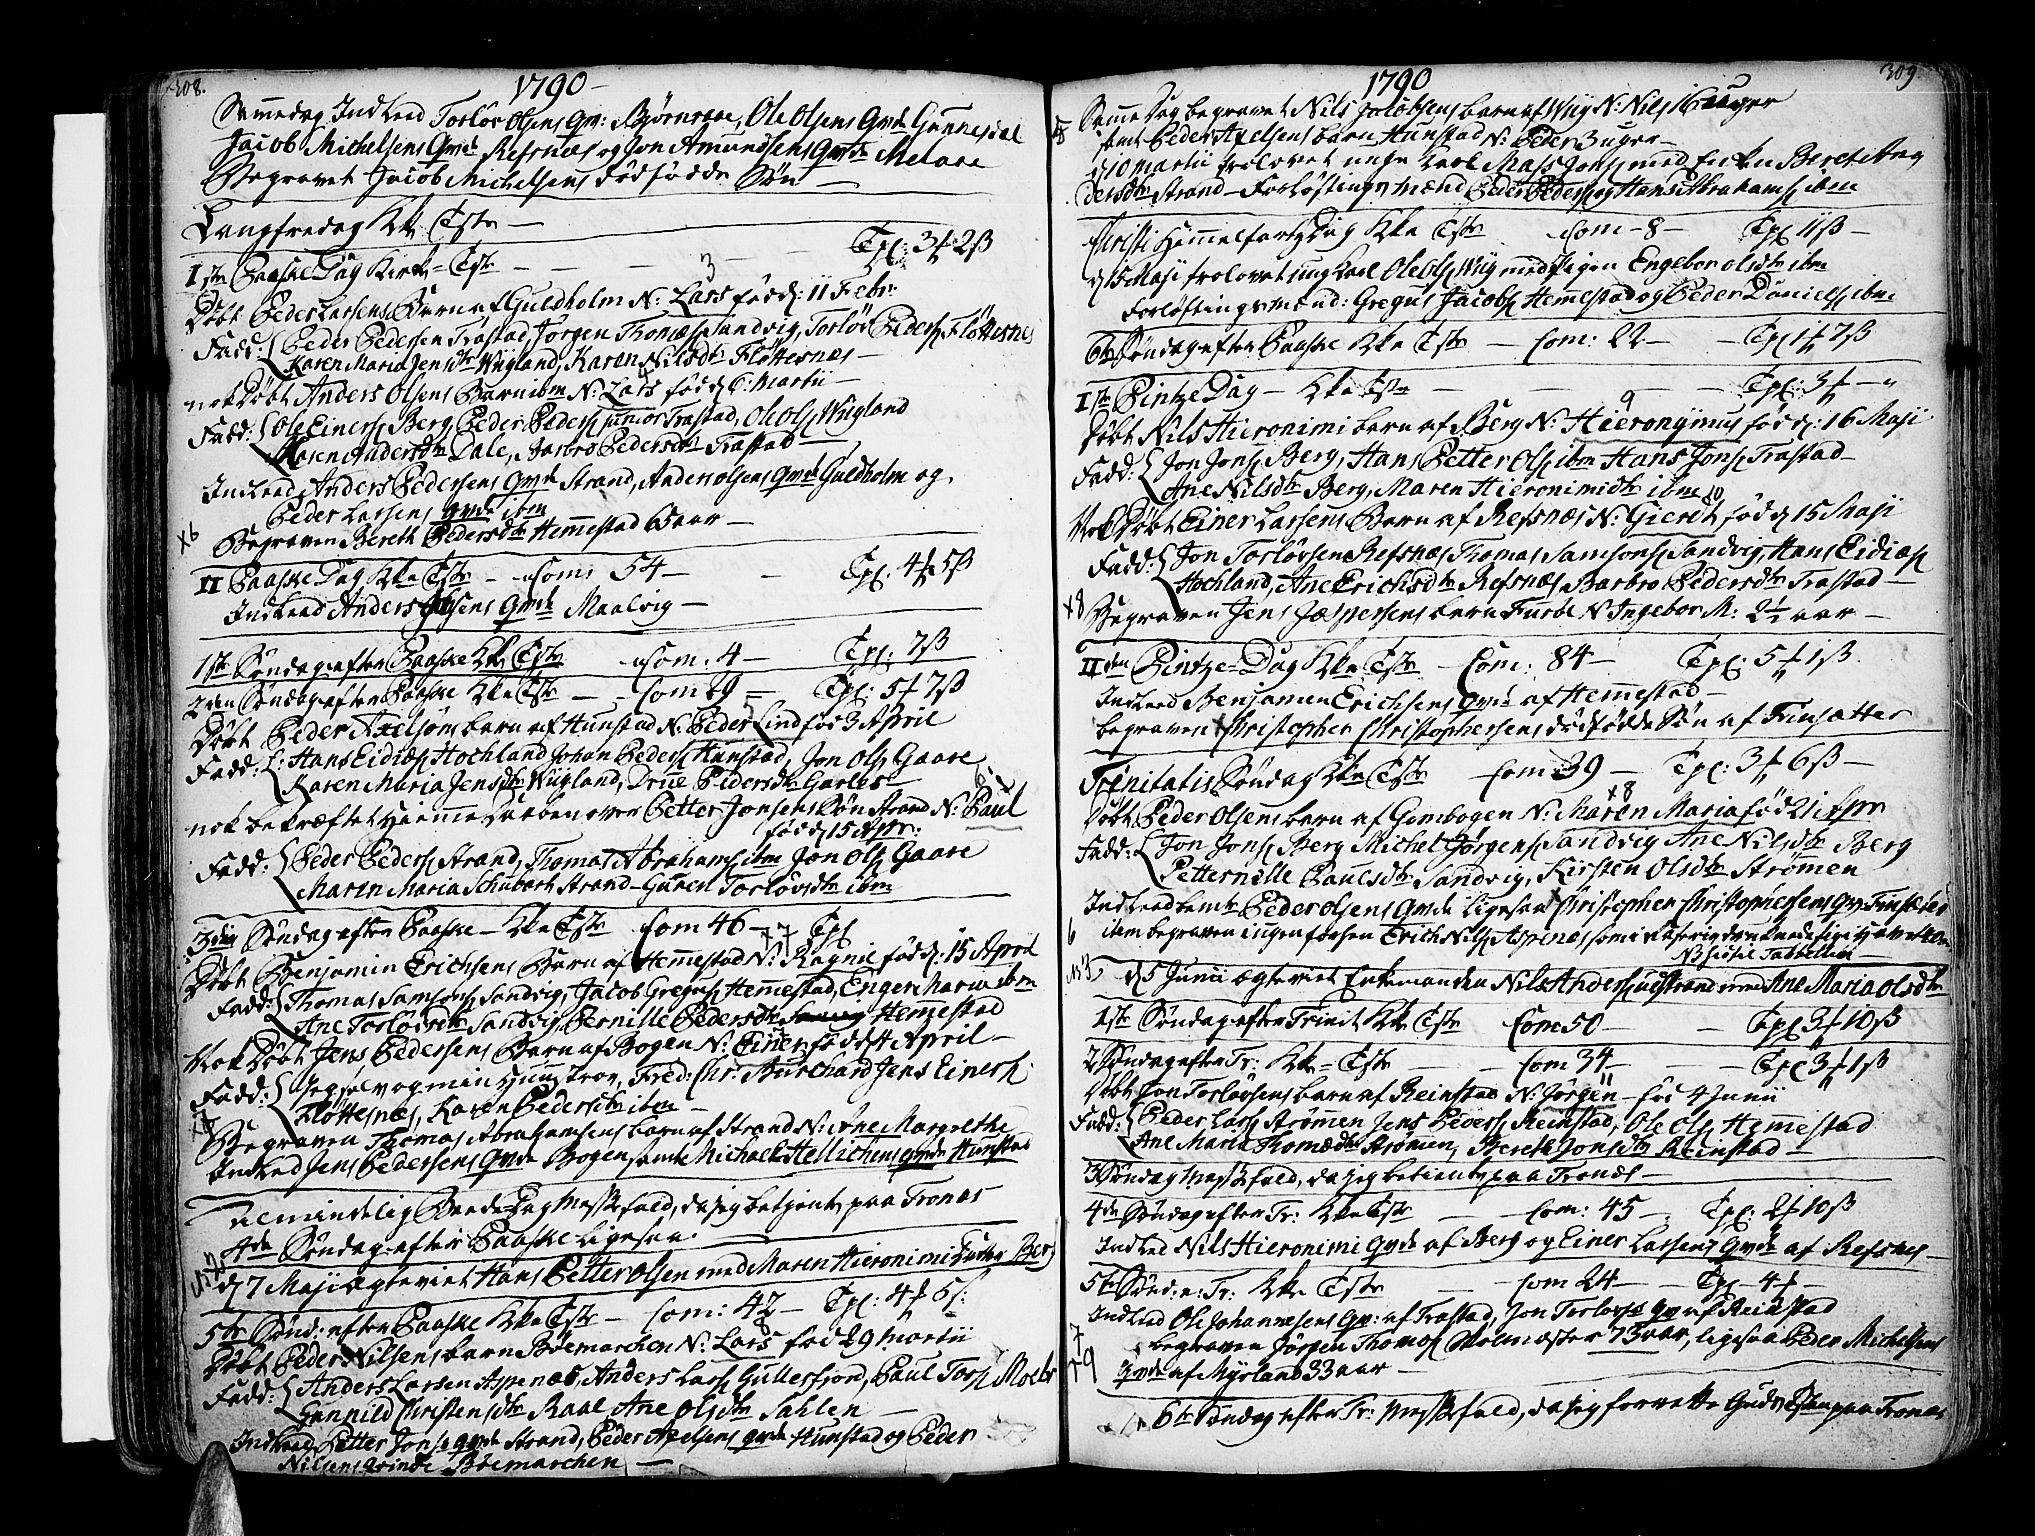 308.
1790
Sammedag Indleed Torlöv Olsens Qv: Björneraae, Ole Olsens Qvde Gunnesdal
Jacob Michelsens Qvde Refsnæs og Jon Amundsens Qvde Meløe
Begravet Jacob Michelsens dödfödde Sön
Langfredag Kke Tstr
Iste Paaske Dag Kirk-Tstr Tpl: 3 f 2 ß
3
Döbt Peder Larsens Barn af Guldholm N: Lars född: 11 Febr:
Fadd: Peder Pedersen Trastad, Jörgen Thomæs Sandvig, Torlöv Peders Flöttesnes
Karen Maria Jensdtr Wiigland, Karen Nilsdtr Flöttesnæs
nok Döbt Anders Olsens Barn ibm N: Lars född 6: Martii
Fadd: Ole Einers Berg, Peder Peders junior Trastad, Ole Ols Wiigland
Maren Andersdtr Dale, Barbro Pedersdtr Trastad
Indleed Anders Pedersens Qvde Strand, Anders Olsens Qvde Guldholm og
Peder Larsens Qvde ibm
x6 Begraven Bereth Pedersdtr Hemmestad 65 aar
II Paaske Dag Kke Tstr Com: 54 Tpl: 4 f 5 ß
Indleed Anders Olsens Qvde Maalvig
1ste Söndag efter Paaske Kke Tstr Com: 4 Tpl: 7 ß
2den Söndag efter Paaske Kke Tstr Com 29 Tpl: 5 f 7 ß
5
Döbt Peder Axelsöns barn af Hunstad N: Peder Lind föd 3 April
Fadd: Hans Eidiæs Hochland Johan Peders Hunstad, Jon Ols Gaare
Karen Maria Jensdtr Wiigland, Drue Pedersdtr Garles
6
nok bekræftet Hiemmedaaben over Petter Jonsens Sön Strand N: Paul
född 15 Apr:
Fadd: Peder Peders Strand, Thomas Abrahams ibm Jon Ols Gaare
Maren Maria Schubart Strand Guren Torlövsdtr ibm
3die Söndag efter Paaske Kke Tstr Com 46 Tpl
x7 7
Döbt Benjamin Erichsens Barn af Hemmestad N: Ragnil född: 15 April
Fadd: Thomas Samsons Sandvig, Jacob Gregus Hemmestad, Enger Maria ibm
Ane Torlövsdtr Sandvig, Pernille Pedersdtr Hemmestad
Nok Döbt Jens Pedersens Barn af Bogen N: Einer född 4 April
Fadd: Jeg selv og min Hustrov, Fred: Chr: Burchard Jens Einers
Flöttesnæs, Karen Pedersdtr ibm
Begraven Thomas Abrahamsens barn af Strand N: Ane Margrethe
Indleed Jens Pedersens Qvde Bogen samt Michael Hellichens Qvde Hunstad
Almindelig Beede Dag Messefald, da jeg betjente paa Tronæs
4de Söndag efter Paaske ligesaa.
d 7 Maji Ægteviet Hans Petter Olsen med Maren Hieronimi Datter Berg
5te Sönd: efter Paaske Kke Tstr Com: 42 Tpl: 4 f 6 ß:
8
Döbt Peder Nilsens barn Böemarchen N: Lars föd 29 Martii
Fadd: Anders Larsen Aspenæs, Anders Lars Gullesfjord, Paul Tors Moelv
Gunnild Christensdtr Kaal Ane Olsdtr Sahlen
Indleed Petter Jonse Qvde Strand, Peder Axelsens Qvde Hunstad og Peder
Nilsens Qvinde Böemarchen
309
1790
8 Samme Dag begravet Nils Jacobsens barn af Wiig N: Nils 16 uger
samt Peder Axelsens barn Hunstad N: Peder 3 uger
d 10 Martii trolovet unge Karl Mass Jons med Enken Beret Ane
dersdtr Strand Forlöftingsmænd Peder Peders og Hans Abrahams ibm
Christi Himmelfarts Dag Kke Tstr Com 8 Tpl 11 ß
d 15 Maji trolovet ung Karl Ole Ols Wiig med Pigen Engebor Olsdtr ibm
Forlöftingsmænd: Gregus Jacobs Hemmestad og Peder Daniels ibm
6te Söndag efter Paaske Kke Tstr Com: 22 Tpl 1 f 7 ß
Iste Pintze Dag Kke Tstr Tpl: 3 f
9
Döbt Nils Hieronimi barn af Berg N: Hieronymus född: 16 Maji
Fadd: Jon Jons Berg, Hans Petter Ols ibm Hans Jons Trastad
Ane Nilsdtr Berg, Maren Hieronimidtr ibm
10
Nok Döbt Einer Larsens Barn af Refsnæs N: Gieret född 15 Maji
Fadd: Jon Torlövsen Refsnæs Thomas Samsons Sandvig, Hans Eidiæs
Hochland, Ane Erichsdtr Refsnæs Barbro Pedersdtr Trastad
x8 Begraven Jens Jæspersens barn Furöe N Ingebor M: 2½ aar
IIden Pintze-Dag Kke Tstr Com: 84 Tpl: 5 f 1 ß
Indleed Benjamin Erichsens Qvde af Hemmestad
begraven Christopher Christophersens dödfödde Sön af Finsætter
Trinitatis Söndag Kke Tstr Com: 39 Tpl: 3 f 6 ß
x8
Döbt Peder Olsens barn af Gombogen N: Maren Maria föd 21 Apr
Fadd: Jon Jons Berg Michel Jörgens Sandvig Ane Nilsdtr Berg
Petternelle Paulsdtr Sandvig, Kirsten Olsdtr Strömen
Indleed Peder Olsens Qvde ligesaa Christopher Christophersens Qv: Finsætter
6
d 5 Junii Ægteviet Enkemanden Nils Anders med Ane Maria Olsdtr
1ste Söndag efter Trinit Kke Tstr Com 50 Tpl 3 f 10 ß
2 Söndag efter Tr: Kke Tstr Com 34 Tpl 3 f 1 ß
11
Döbt Jon Torlövsens barn af Reinstad N: Jörgen föd 4 Junii
Fadd: Peder Lars Strömen Jens Peders Reinstad, Ole Ols Hemestad
Ane Maria Thomædtr Strömen, Bereth Jonsdtr Reinstad
3 Söndag Messefald, da jeg betiente paa Tronæs
4de Söndag efter Tr: Kke Tstr Com: 45 Tpl: 2 f 10 ß
Indleed Nils Hieronimi Qvde af Berg og Einer Larsens Qvde af Refsnes
5te Sönd: e: Tr: Kke Tstr Com 24 Tpl 4 f
Indleed Ole Johannesens Qv: af Trastad, Jon Torlovs Qv af Reinstad
7 begraven Jörgen Thomos Holmæster 73 aar, ligesaa Peder Michelsens
79 Qvde af Myrland 33 aar
6te Söndag efter Tr: Messefald, da jeg forrette Guds Tieneste paa Tronæs